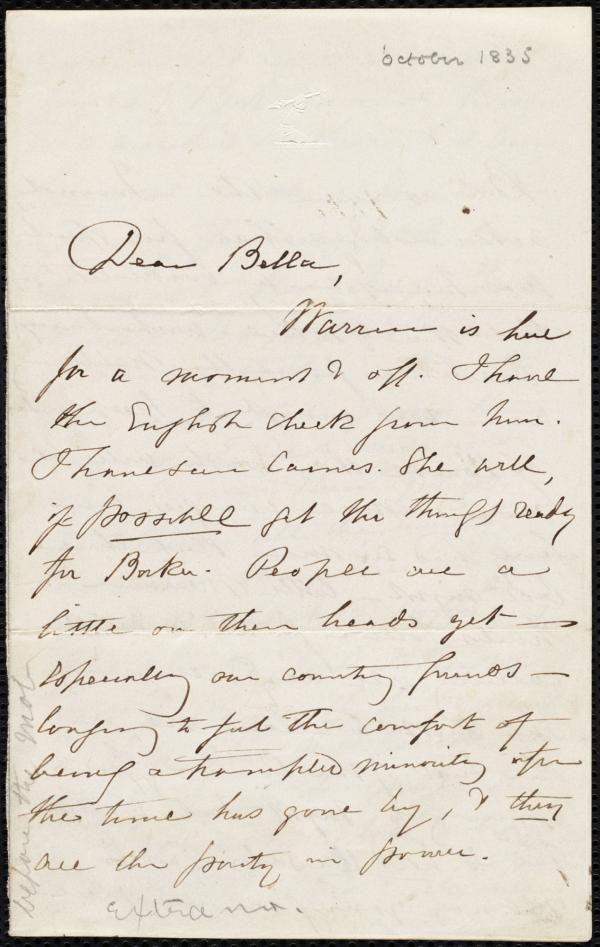 October 1835
Dear Bella,
Warren is here
for a moment & off. I have
the English check from him.
I have seen Caines. She will,
if possible get the things ready
for Borker. People are a
little on their heads yet —
especially our country friends —
longing to feel the comfort of
being a trampled minority after
the time has gone by, & they
are the party in power.
before the mob